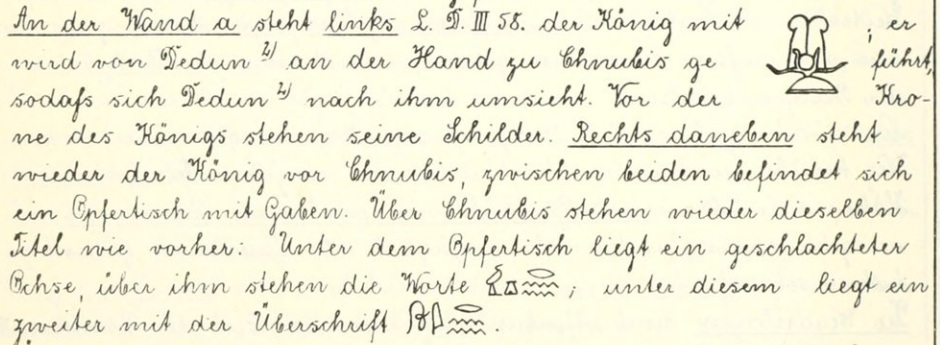 An der Wand a steht links L. D. III 58. der König mit ; er
wird von Dedun 2) an der Hand zu Chnubis ge führt,
sodaſs sich Dedun 2) nach ihm umsieht. Vor der Kro-
ne des Königs stehen seine Schilder. Rechts daneben steht
wieder der König vor Chnubis, zwischen beiden befindet sich
ein Opfertisch mit Gaben. Über Chnubis stehen wieder dieselben
Titel wie vorher: Unter dem Opfertisch liegt ein geschlachteter
Ochse, über ihm stehen die Worte ; unter diesem liegt ein
zweiter mit der Überschrift .